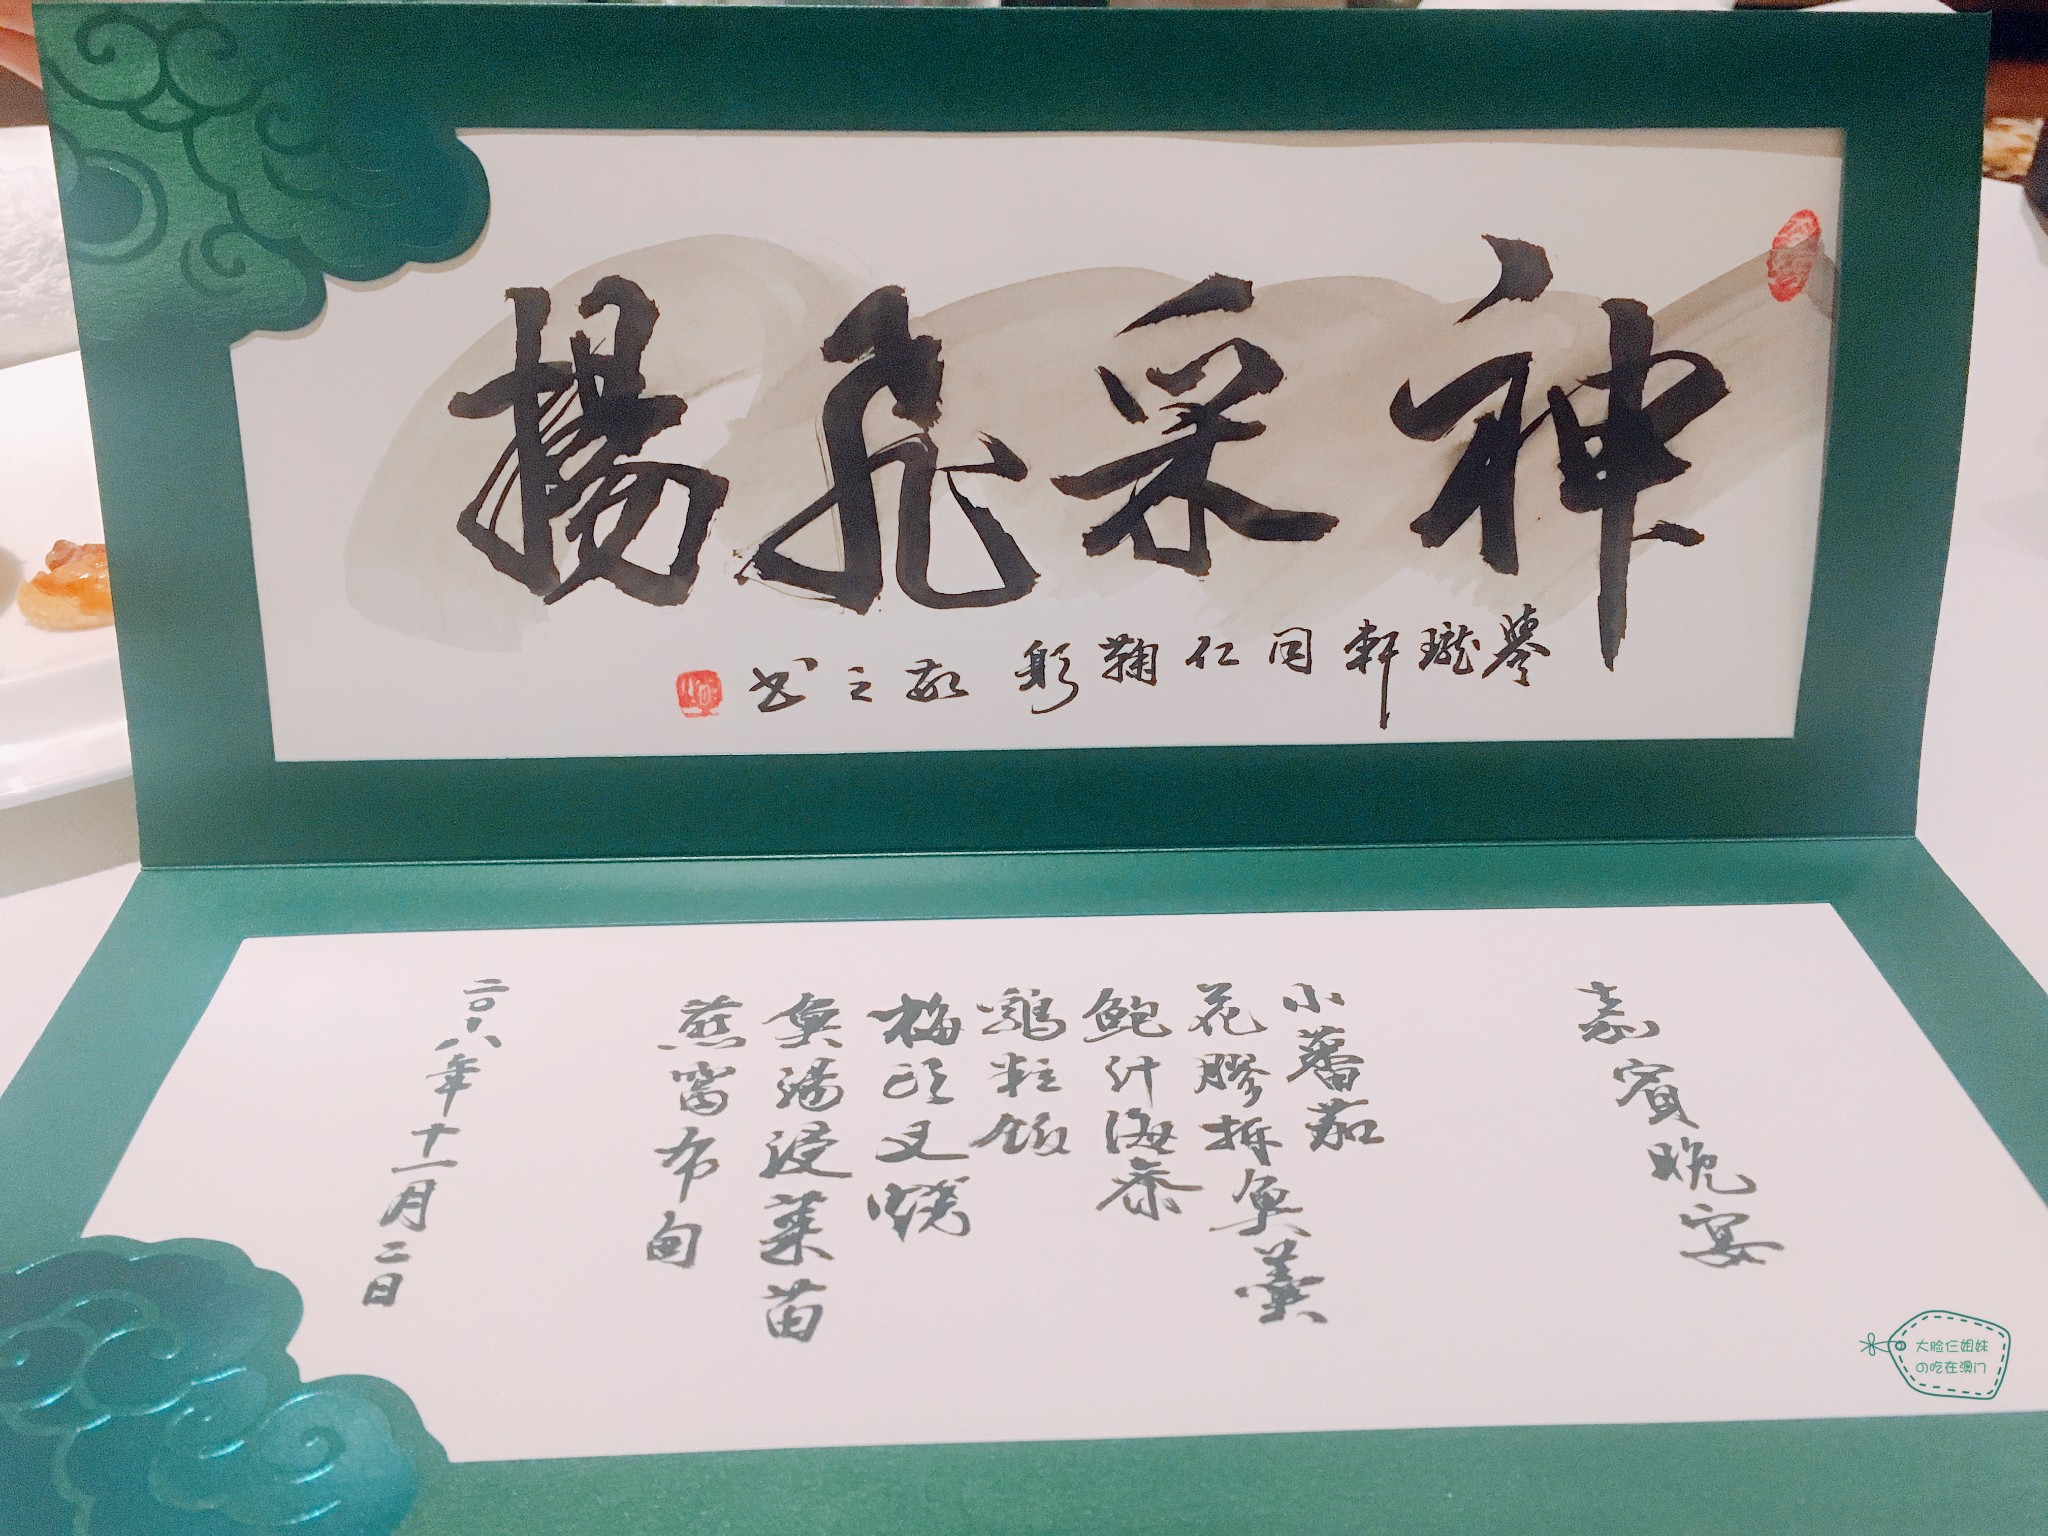 神采飛揚
譽瓏軒同仁鞠躬
敬之書
嘉賓晚宴
小蕃茄
花膠拆魚羹
鮑汁海參
鷄粒飯
梅頭叉燒
魚湯浸菜苗
燕窩布甸
二〇一八年十一月二日
大脸仨姐妹
の吃在澳门